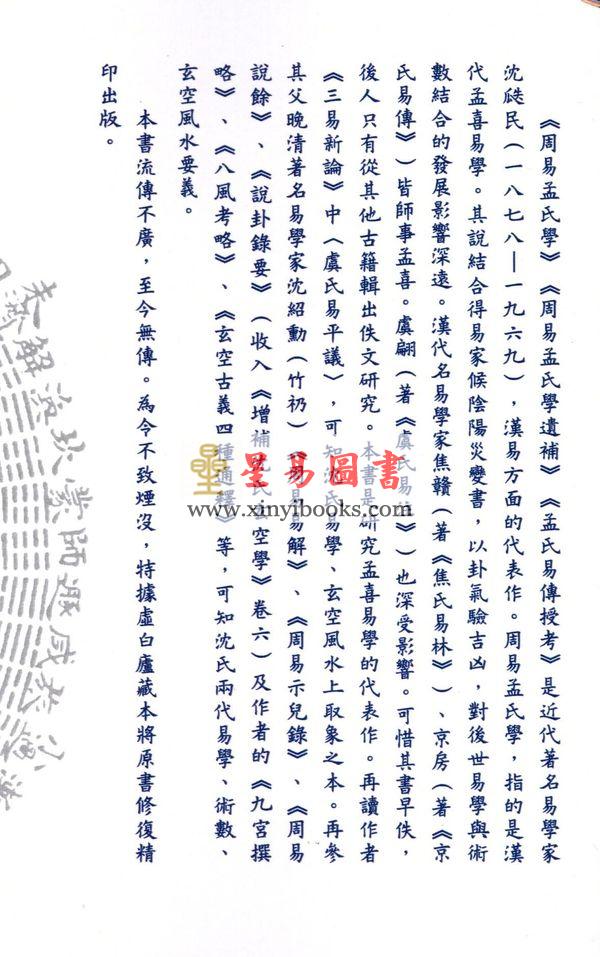 《周易孟氏學》《周易孟氏學遺補》《孟氏易傳授考》是近代著名易學家
沈瓞民（一八七八—一九六九），漢易方面的代表作。周易孟氏學，指的是漢
代孟喜易學。其說結合得易家候陰陽災變書，以卦氣驗吉凶，對後世易學與術
數結合的發展影響深遠。漢代名易學家焦贛（著《焦氏易林》）、京房（著《京
氏易傳》）皆師事孟喜。虞翩（著《虞氏易》）也深受影響。可惜其書早佚，
後人只有從其他古籍輯出佚文研究。本書是研究孟喜易學的代表作。再讀作者
《三易新論》中〈虞氏易平議〉，可知沈氏易學、玄空風水上取象之本。再參
其父晚清著名易學家沈紹勳（竹礽）《周易易解》、《周易示兒錄》、《周易
說餘》、《說卦錄要》（收入《增補沈氏玄空學》卷六）及作者的《九宮撰
略》、《八風考略》、《玄空古義四種通釋》等，可知沈氏兩代易學、術數、
玄空風水要義。
本書流傳不廣，至今無傳。為令不致煙沒，特據虛白廬藏本將原書修復精
印出版。
星易圖書
www.xinyibooks.com